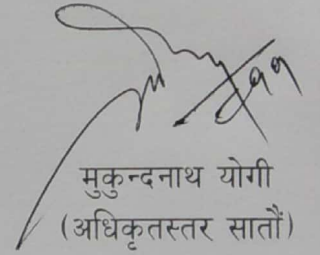 मुकुन्दनाथ योगी
(अधिकृतस्तर सातौं)